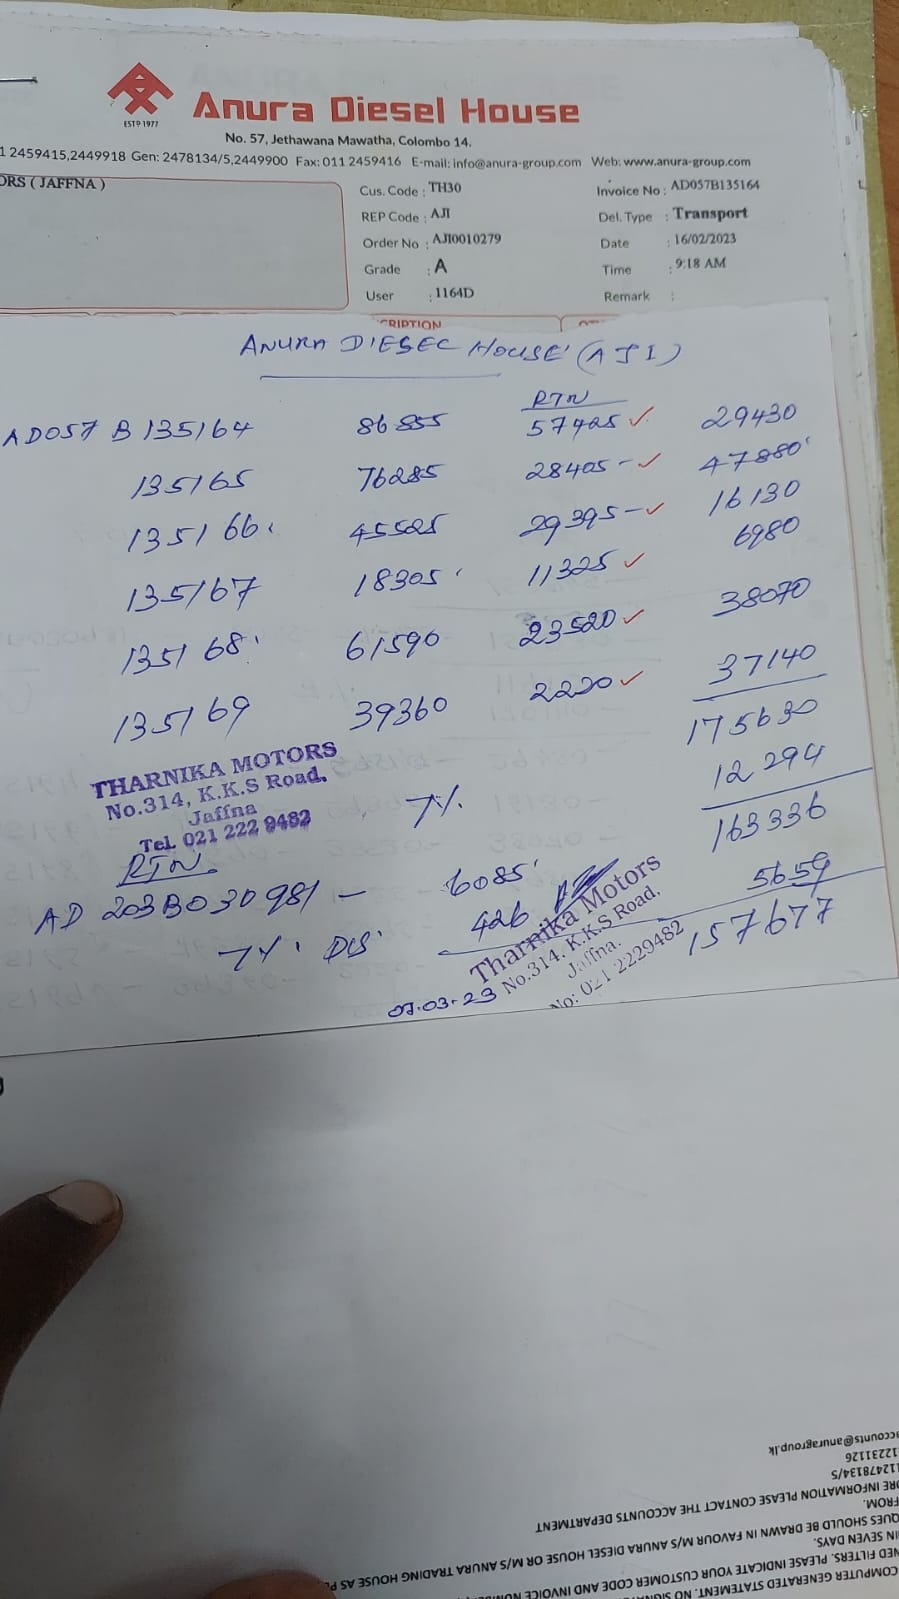 ESTD 1977
Anura Diesel House
No. 57, Jethawana Mawatha, Colombo 14.
1 2459415,2449918 Gen: 2478134/5,2449900 Fax: 011 2459416 E-mail: info@anura-group.com Web: www.anura-group.com
ORS ( JAFFNA )
Cus. Code : TH30 Invoice No : AD057B135164
REP Code : AJI Del. Type : Transport
Order No : AJI0010279 Date : 16/02/2023
Grade : A Time : 9:18 AM
User : 1164D Remark :
CRIPTION
ANURA DIESEL HOUSE (AJI)
RTN
AD057 B 135164 86855 57425 29430
135165 76285 28405 - 47880
135166 45525 29395 - 16130
135167 18305 11325 6980
135168 61590 23520 38070
135169 39360 2220 37140
175630
THARNIKA MOTORS
No.314, K.K.S Road,
Jaffna
Tel. 021 222 9482
7% 12294
163336
RTN
AD 203B030981 - 6085 5659
7% DIS 426 157677
Tharnika Motors
No.314, K.K.S Road,
Jaffna.
No: 021 2229482
07.03.23
COMPUTER GENERATED STATEMENT. NO
NED FILTERS. PLEASE INDICATE YOUR CUSTOMER CODE AND INVOICE
IN SEVEN DAYS.
QUES SHOULD BE DRAWN IN FAVOUR M/S ANURA DIESEL HOUSE OR M/S ANURA TRADING HOUSE AS
FROM.
ORE INFORMATION PLEASE CONTACT THE ACCOUNTS DEPARTMENT
112478134/5
12231126
accounts@anuragroup.lk